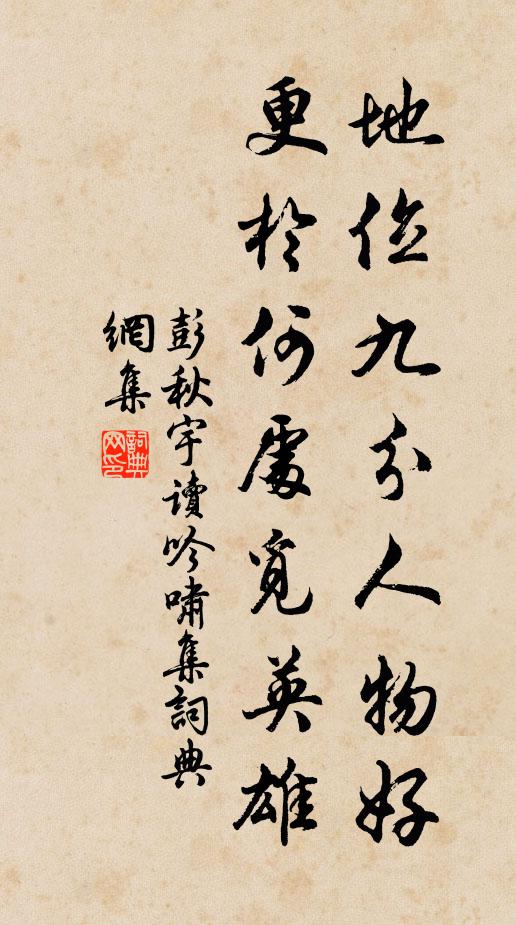 地位九分人物好
更於何處覓英雄
彭秋宇讀吟嘯集詞典
網集
詞典
网印